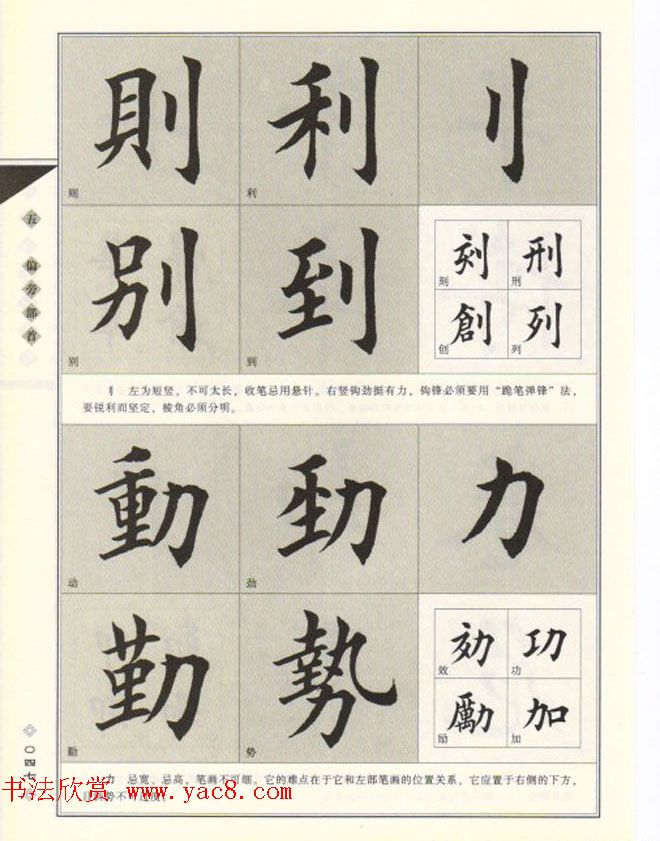 五 偏旁部首
則 利 刂
则 利
別 到
别 到
刻 刑
刻 刑
創 列
创 列
刂 左为短竖，不可太长，收笔忌用悬针。右竖钩劲挺有力，钩锋必须要用“跪笔弹锋”法，
要锐利而坚定，棱角必须分明。
動 勁 力
动 劲
勤 勢
勤 势
効 功
效 功
勵 加
励 加
力 忌宽、忌高，笔画不可细。它的难点在于它和左部笔画的位置关系，它应置于右侧的下方，
势不可过度。
〇四七
书法欣赏 www.yac8.com